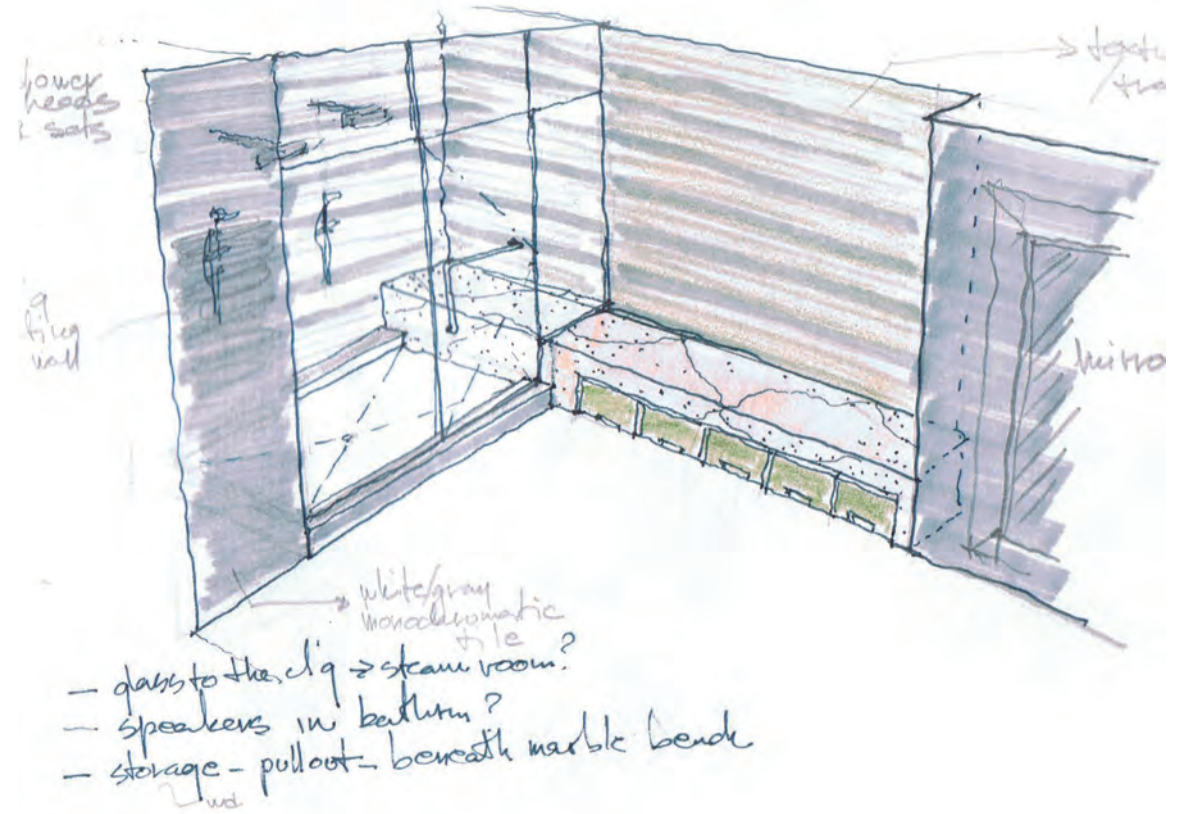 hower
heads
sets
wall
mirro
white/gray
monochromatic
tile
— glass to the cl'g → steam room?
— speakers in bathrm?
— storage - pullout - beneath marble bench
wd